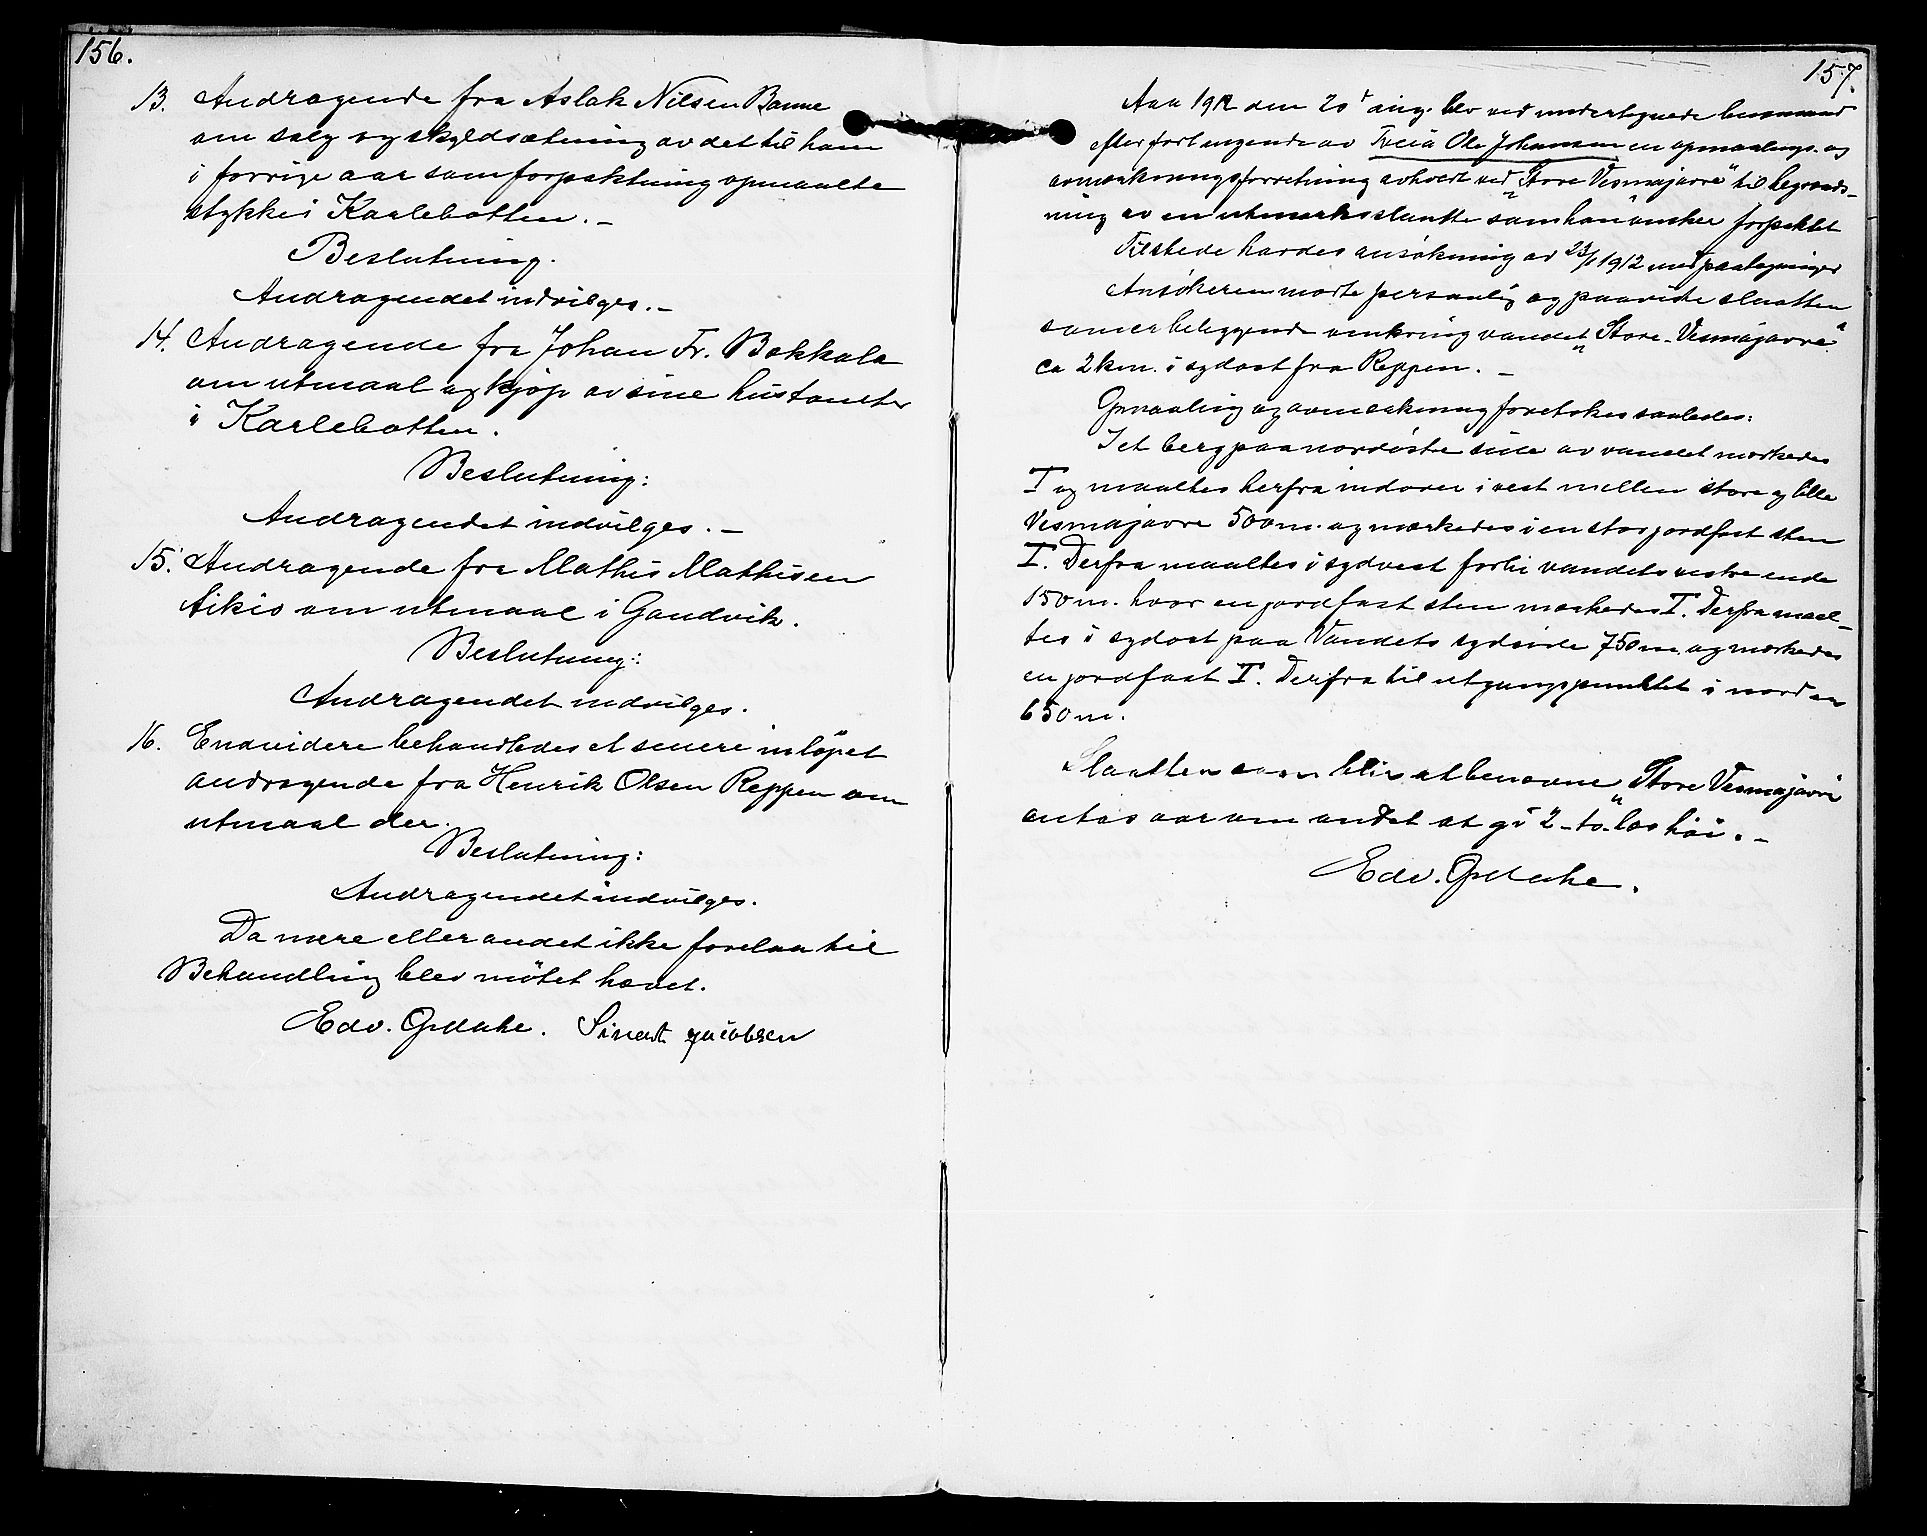 156.
13. Andragende fra Aslak Nilsen Banne
om salg og skyldsætning av det til ham
i forrige aar som forpaktning opmaalte
stykke i Karlebotten. –
Beslutning.
Andragendet indvilges. –
14. Andragende fra Johan Fr. Bakkala
om utmaal og kjøp av sine hustomter
i Karlebotten.
Beslutning:
Andragendet indvilges. –
15. Andragende fra Mathis Mathisen
Aikio om utmaal i Gandvik.
Beslutning:
Andragendet indvilges.
16. Endvidere behandledes et senere inløpet
andragende fra Henrik Olsen Reppen om
utmaal der.
Beslutning:
Andragendet indvilges.
Da mere eller andet ikke forelaa til
Behandling blev møtet hævet.
Edv. Opdahe. Sivert Jacobsen
157.
Aar 1912 den 20d aug. blev ved undertegnede
efter forlangende av Ole Johansen en opmaalings- og
avmerkningsforretning avholdt ved "Store Vesmajavre" til begrænds-
ning av en utmarksslaatte som han ønsker forpaktet
Tilstede havdes ansøkning av 23/1 1912 med paategninger
Ansøkeren møtte personlig og paaviste slaatten
som er beliggende omkring vandet "Store-Vesmajavre"
ca 2 km. i sydost fra Reppen. –
Opmaaling og avmerkning foretokes saaledes:
I et berg paa nordøstre side av vandet merkedes
I og maaltes herfra indover i vest mellen store og lille
Vesmajavre 500 m. og merkedes i en stor jordfast sten
I. Derfra maaltes i sydvest forbi vandets vestre ende
150 m. hvor en jordfast sten merkedes I. Derfra maal-
tes i sydost paa Vandets sydside 750 m. og merkedes
en jordfast I. Derfra til utgangspunktet i nord er
650 m.
Slaatten som blir at benævne "Store Vesmajavre
antas aar om andet at gi 2 – to – læs høi. –
Edv. Opdahe.